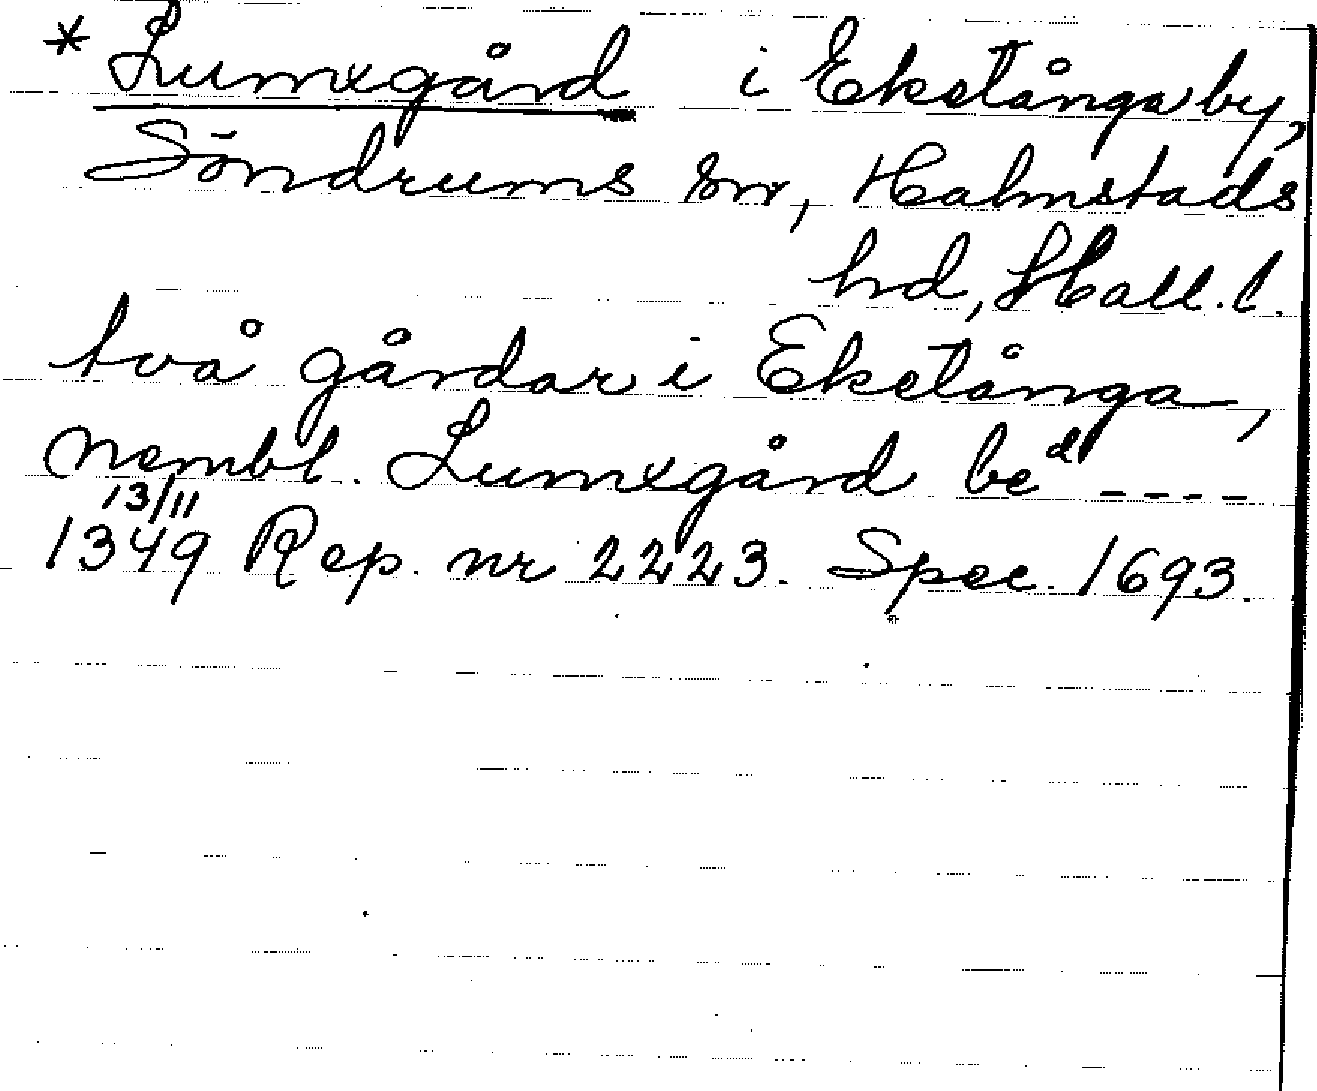 * Lumxgård i Eketånga by,
Söndrums sn, Halmstads
hd, Hall. l.
två gårdar i Eketånga,
nembl. Lumxgård bed ----
13/11
1349 Rep. nr 2223. Spec. 1693.